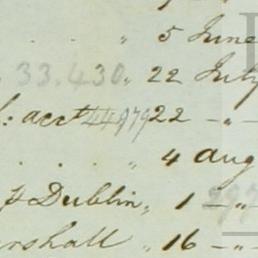 . . . . „ 5 June
33.430 „ 22 July
: acct 44979 22 - „ -
. . . . „ 4 Aug
Dublin „ 1 - „
rshall „ 16 - „ -